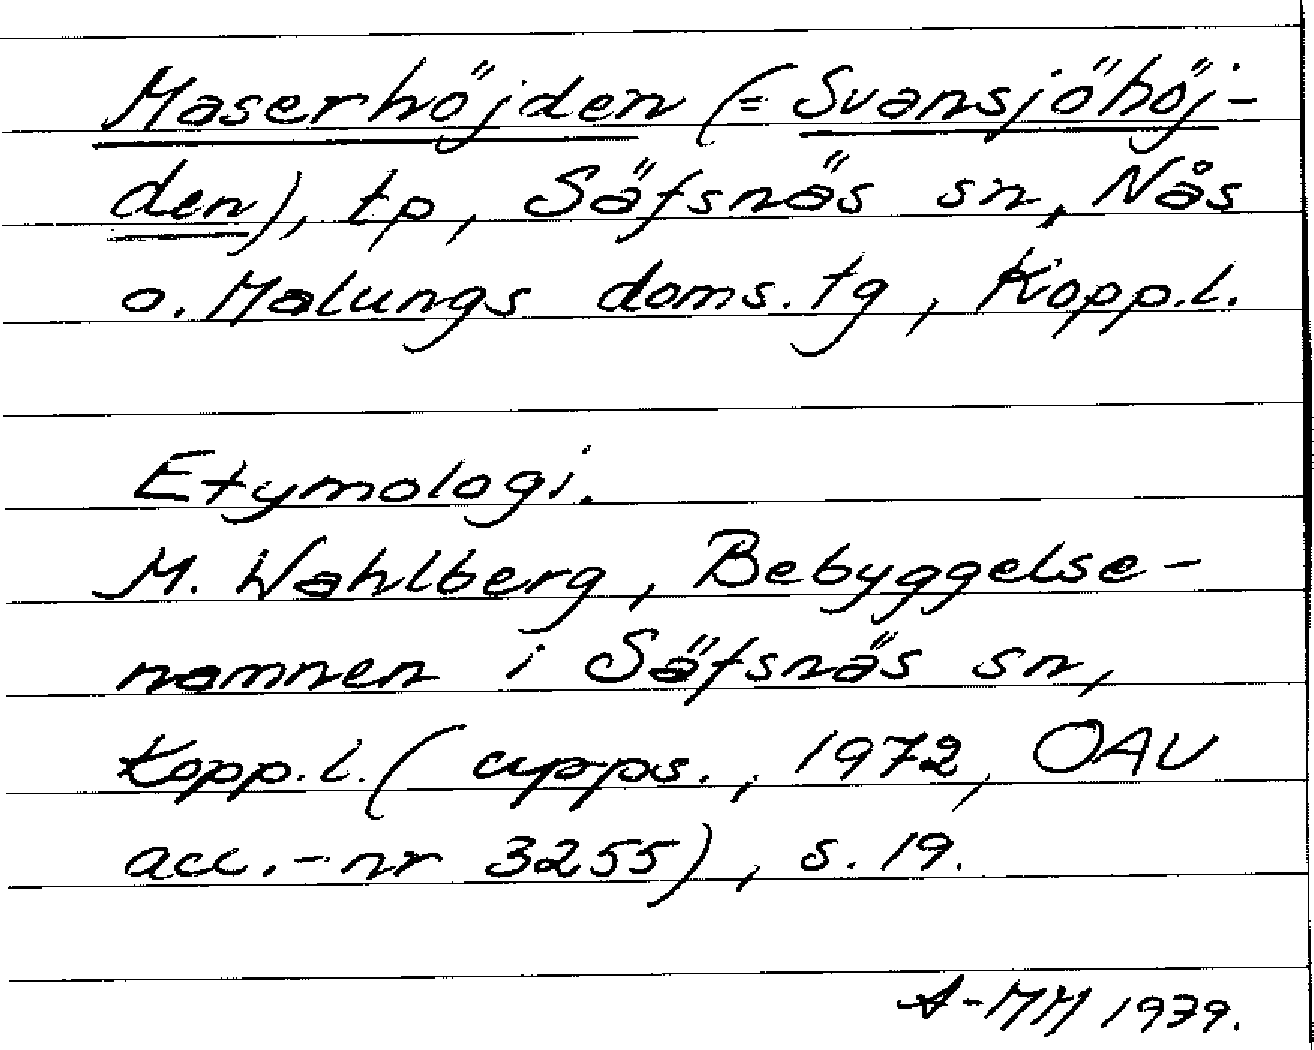 Maserhöjden (= Svansjöhöj-
den), tp, Säfsnäs sn, Nås
o. Malungs doms. tg, Kopp.l.
Etymologi.
M. Wahlberg, Bebyggelse-
namnen i Säfsnäs sn,
Kopp.l. (upps., 1972, OAU
acc.-nr 3255), s. 19.
A-MM 1979.